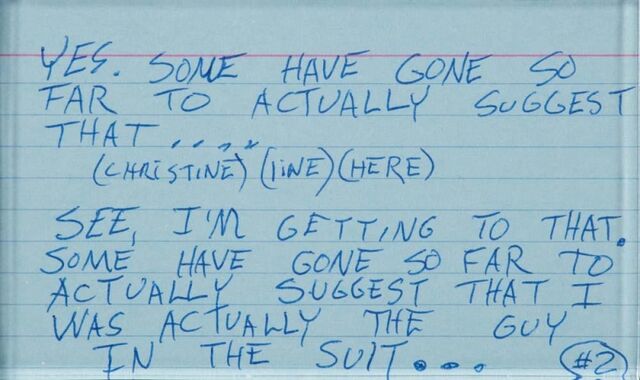 YES. SOME HAVE GONE SO
FAR TO ACTUALLY SUGGEST
THAT....
(CHRISTINE) (LINE) (HERE)
SEE, I'M GETTING TO THAT.
SOME HAVE GONE SO FAR TO
ACTUALLY SUGGEST THAT I
WAS ACTUALLY THE GUY
IN THE SUIT...
#2